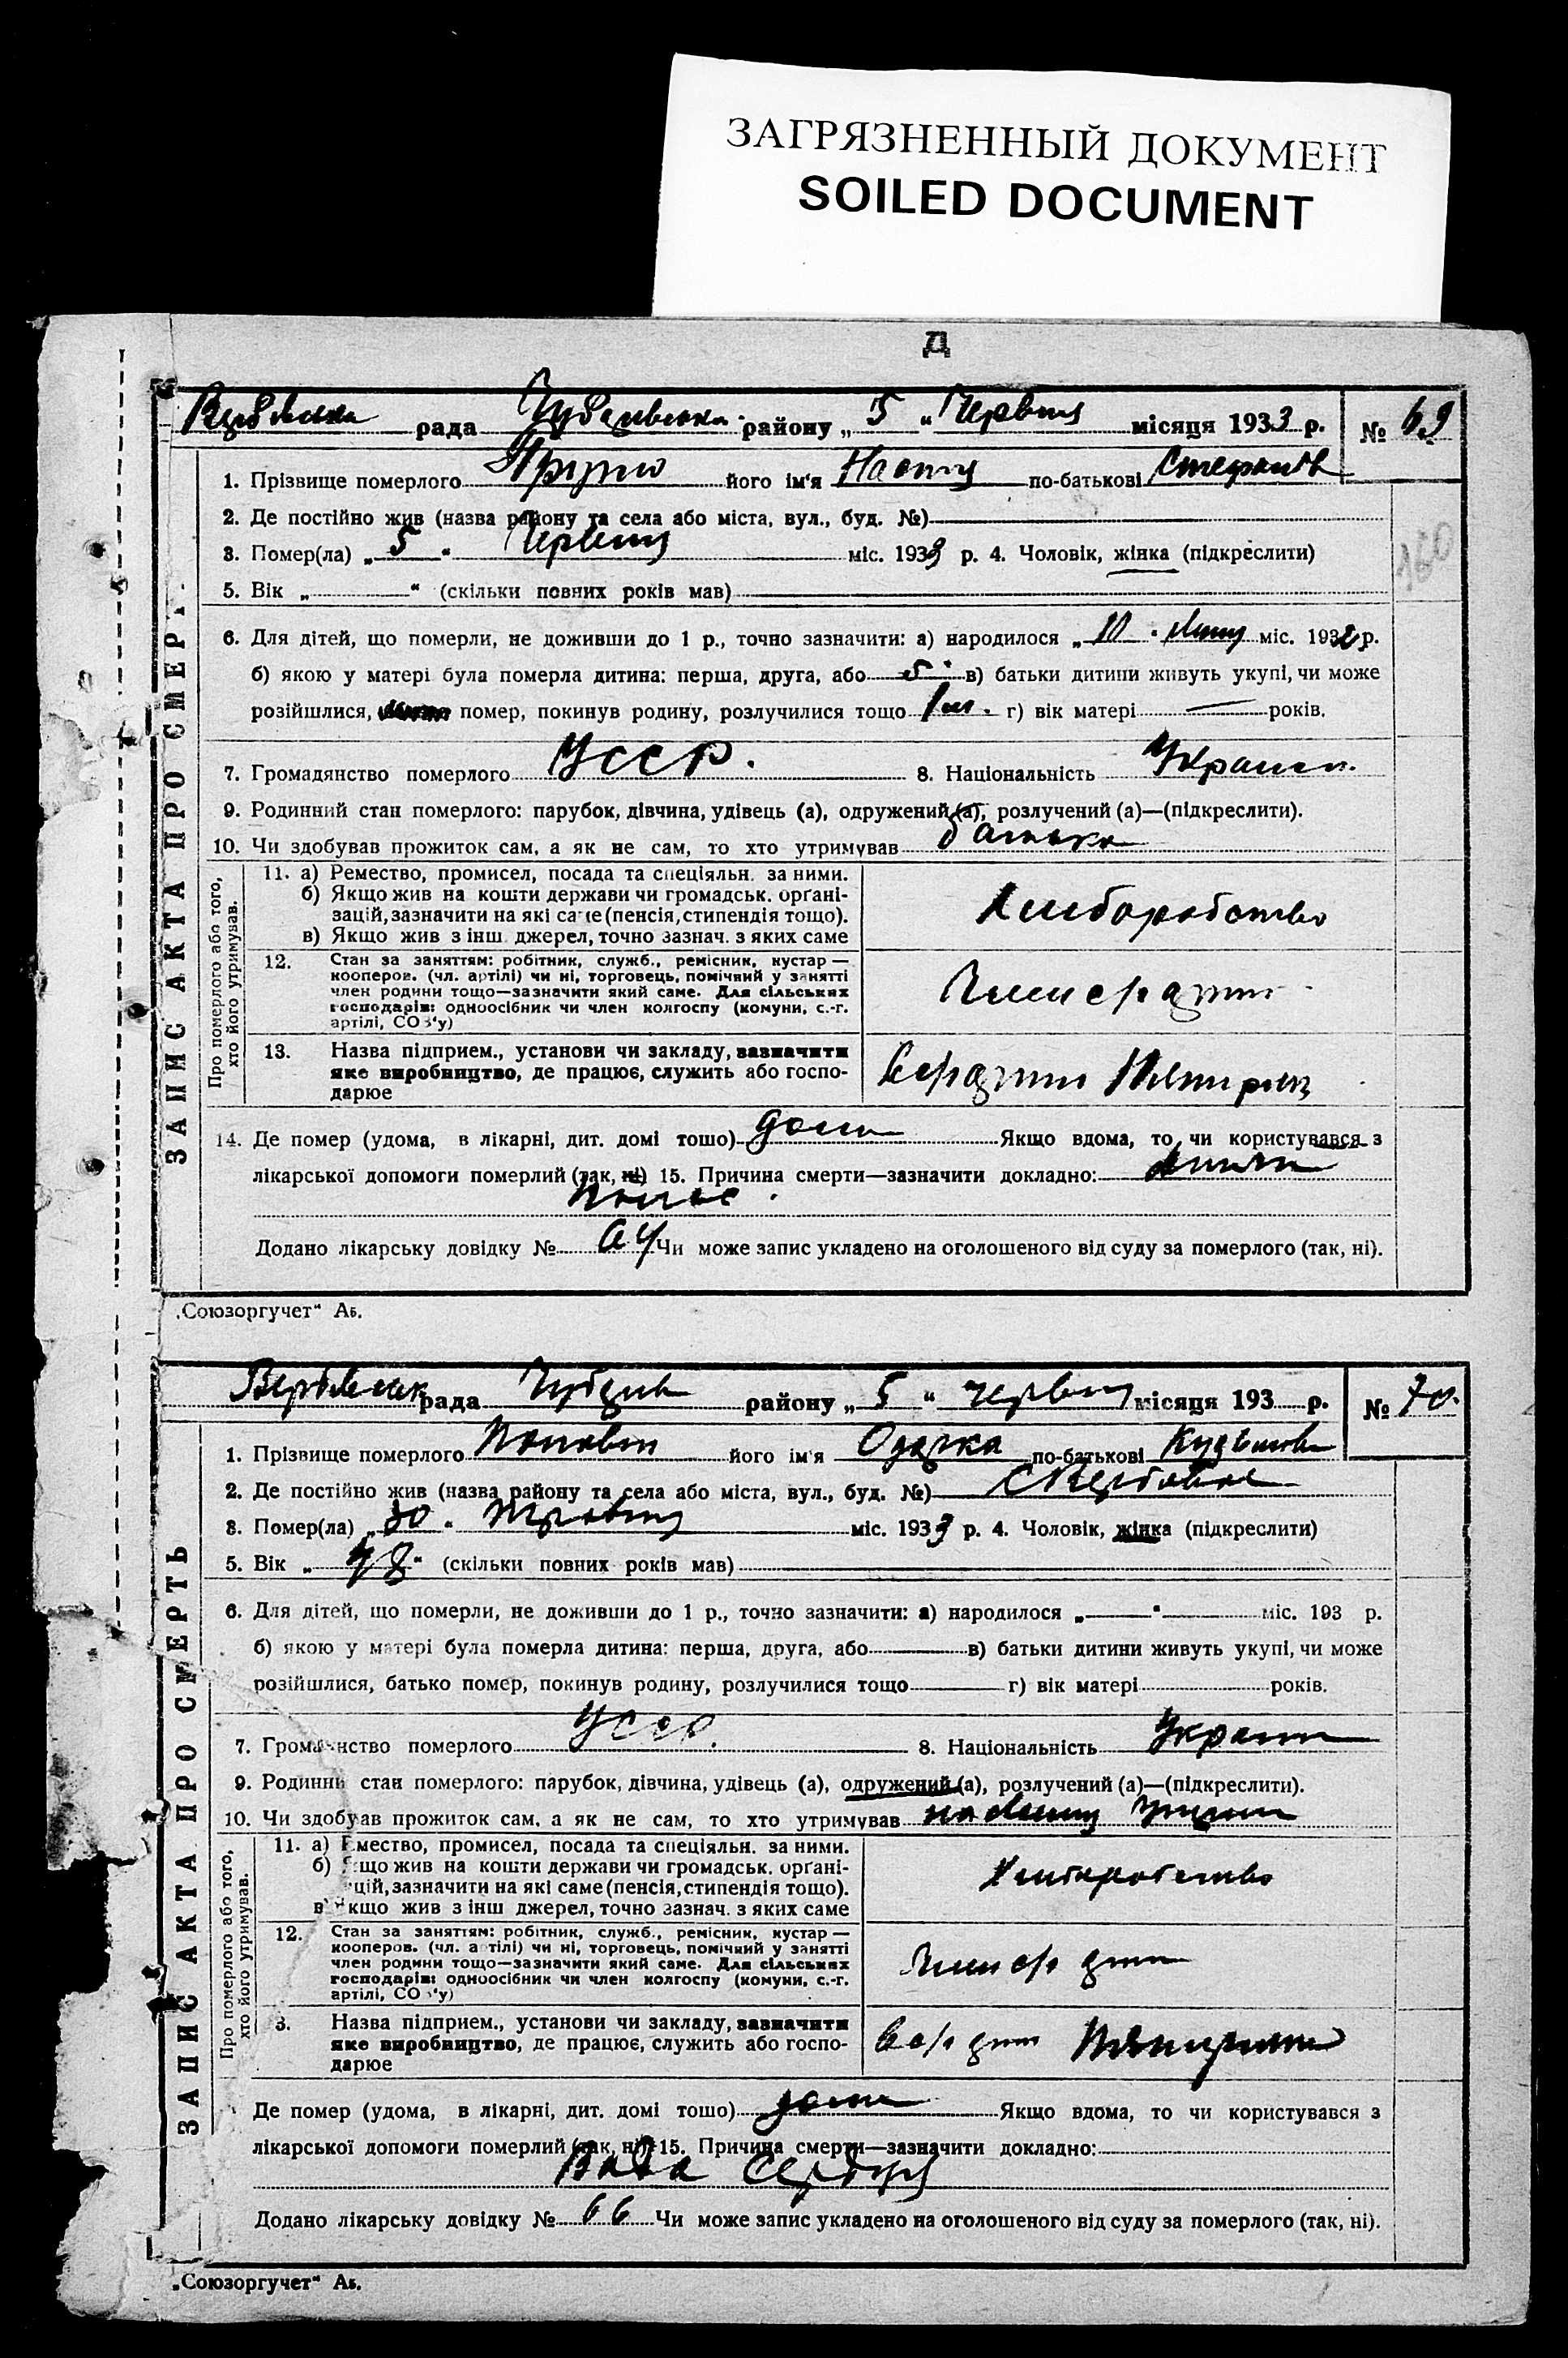 ЗАГРЯЗНЕННЫЙ ДОКУМЕНТ
SOILED DOCUMENT
Д
рада району „ 5 “ Червня місяця 1933 р. № 69
ЗАПИС АКТА ПРО СМЕРТ
1. Прізвище померлого його ім'я Настя по-батькові Стефанів
2. Де постійно жив (назва району та села або міста, вул., буд. №)
3. Помер(ла) „ 5 “ Червня міс. 1933 р. 4. Чоловік, жінка (підкреслити)
5. Вік „ “ (скільки повних років мав)
6. Для дітей, що померли, не доживши до 1 р., точно зазначити: а) народилося „ 10 “ міс. 1932 р.
б) якою у матері була померла дитина: перша, друга, або 5 в) батьки дитини живуть укупі, чи може
розійшлися, помер, покинув родину, розлучилися тощо г) вік матері — років.
7. Громадянство померлого УССР. 8. Національність Украин.
9. Родинний стан померлого: парубок, дівчина, удівець (а), одружений (а), розлучений (а)—(підкреслити).
10. Чи здобував прожиток сам, а як не сам, то хто утримував батько
Про померлого або того, хто його утримував.
11. а) Ремество, промисел, посада та спеціяльн. за ними.
б) Якщо жив на кошти держави чи громадськ. орґані-
зацій, зазначити на які саме (пенсія, стипендія тощо).
в) Якщо жив з інш. джерел, точно зазнач. з яких саме
Хліборобство
12. Стан за заняттям: робітник, служб., ремісник, кустар —
кооперов. (чл. артілі) чи ні, торговець, помічний у занятті
член родини тощо—зазначити який саме. Для сільських
господарів: одноосібник чи член колгоспу (комуни, с.-г.
артілі, СОЗ'у)
13. Назва підприєм., установи чи закладу, зазначити
яке виробництво, де працює, служить або госпо-
дарює
14. Де помер (удома, в лікарні, дит. домі тощо) дома Якщо вдома, то чи користувався з
лікарської допомоги померлий (так, ні) 15. Причина смерти—зазначити докладно:
Додано лікарську довідку № Чи може запис укладено на оголошеного від суду за померлого (так, ні).
„Союзоргучет“ Аб.
рада району „ 5 “ червня місяця 193 р. № 70.
ЗАПИС АКТА ПРО СМЕРТЬ
1. Прізвище померлого його ім'я Одарка по-батькові
2. Де постійно жив (назва району та села або міста, вул., буд. №)
3. Помер(ла) „ 30 “ Травня міс. 1933 р. 4. Чоловік, жінка (підкреслити)
5. Вік „ “ (скільки повних років мав)
6. Для дітей, що померли, не доживши до 1 р., точно зазначити: а) народилося „ — “ міс. 193 р.
б) якою у матері була померла дитина: перша, друга, або — в) батьки дитини живуть укупі, чи може
розійшлися, батько помер, покинув родину, розлучилися тощо — г) вік матері років.
7. Громадянство померлого УССР. 8. Національність Украин
9. Родинний стан померлого: парубок, дівчина, удівець (а), одружений (а), розлучений (а)—(підкреслити).
10. Чи здобував прожиток сам, а як не сам, то хто утримував
Про померлого або того, хто його утримував.
11. а) Ремество, промисел, посада та спеціяльн. за ними.
б) Якщо жив на кошти держави чи громадськ. орґані-
зацій, зазначити на які саме (пенсія, стипендія тощо).
в) Якщо жив з інш джерел, точно зазнач. з яких саме
Хліборобство
12. Стан за заняттям: робітник, служб., ремісник, кустар —
кооперов. (чл. артілі) чи ні, торговець, помічний у занятті
член родини тощо—зазначити який саме. Для сільських
господарів: одноосібник чи член колгоспу (комуни, с.-г.
артілі, СОЗ'у)
3. Назва підприєм., установи чи закладу, зазначити
яке виробництво, де працює, служить або госпо-
дарює
Де помер (удома, в лікарні, дит. домі тощо) дома Якщо вдома, то чи користувався з
лікарської допомоги померлий (так, ні) 15. Причина смерти—зазначити докладно:
Вада сердця
Додано лікарську довідку № 66 Чи може запис укладено на оголошеного від суду за померлого (так, ні).
„Союзоргучет“ Аб.